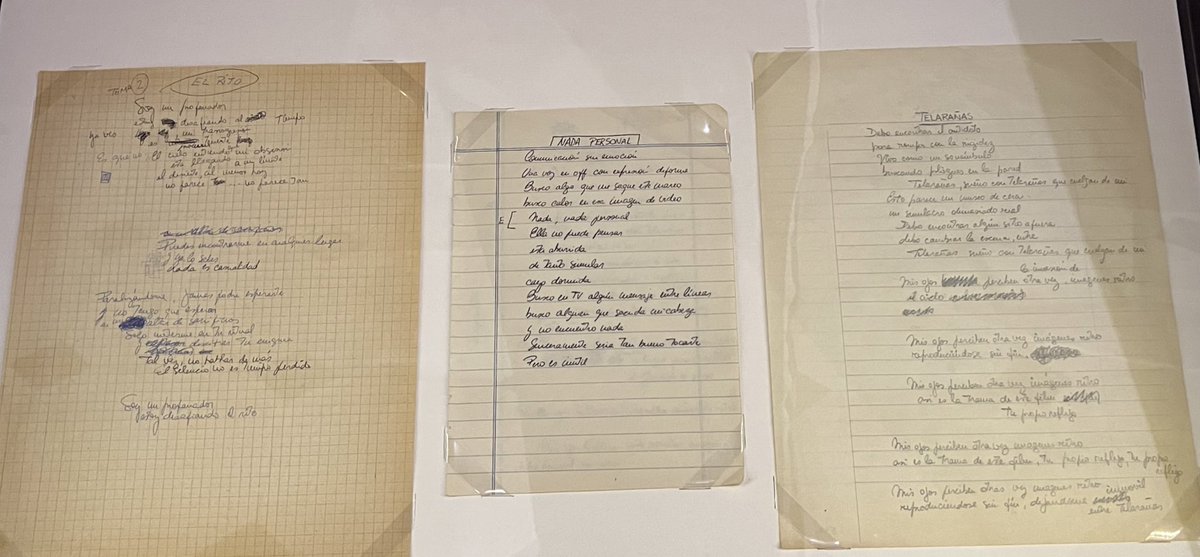 TOMA 2
EL RITO
Soy un profanador
estoy desafiando al Tiempo
Ya ves
es
Es que no, el cielo entiende mi obsesión
está llegando a un límite
el demente, al menos hoy
no parece Tan ... no parece Tan
Puedes encontrarme en cualquier lugar
Ya lo sabes
nada es casualidad
Paralizándome, jamás podré
y no tengo que esperar
un altar de sacrificios
Sigo
descifrar tu enigma
Tal vez, no hablar de más
El silencio no es tiempo perdido
Soy un profanador
estoy desafiando el rito
NADA PERSONAL
Comunicación sin emoción
Una voz en off con expresión deforme
Busco algo que me saque este mareo
busco calor en esa imagen de video
E [ Nada, nada personal
Ella no puede pensar
está aburrida
de tanto simular
cayó dormida
Busco en TV algún mensaje entre líneas
busco alguien que sacuda mi cabeza
y no encuentro nada
Sinceramente sería tan bueno tocarte
Pero es inútil
TELARAÑAS
Debo encontrar el antídoto
para romper con la rigidez
Vivo como un sonámbulo
buscando pliegues en la pared
Telarañas, sueño con Telarañas que cuelgan de mí
Esto parece un museo de cera
un simulacro demasiado real
Debo encontrar algún sitio afuera
debo cambiar la escena, entre
Telarañas sueño con Telarañas que cuelgan de mí
la invasión de
Mis ojos perciben otra vez, imágenes retro
el cielo
Mis ojos perciben otra vez imágenes retro
reproduciéndose sin fin,
Mis ojos perciben otra vez imágenes retro
así es la trama de este film
Tu propio reflejo
Mis ojos perciben otra vez imágenes retro
así es la trama de este film, Tu propio reflejo, Tu propio
reflejo
Mis ojos perciben otra vez imágenes retro
reproduciéndose sin fin, dejándome inmóvil
entre Telarañas